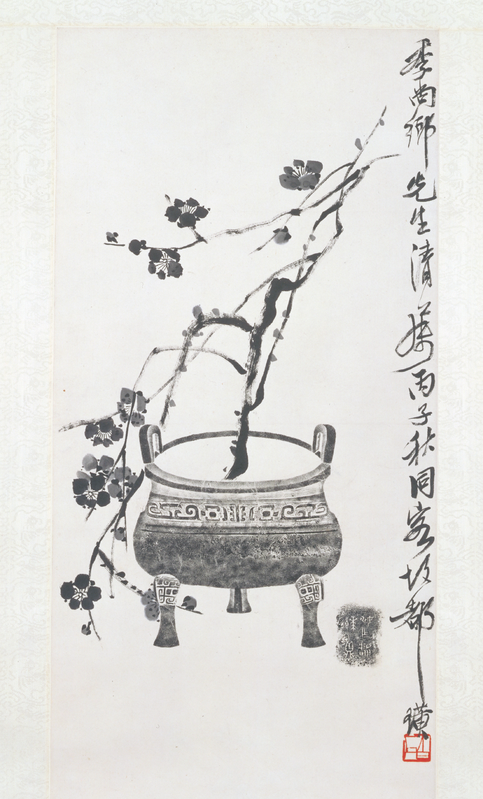 季尚卿先生清屬丙子秋同客故都璜